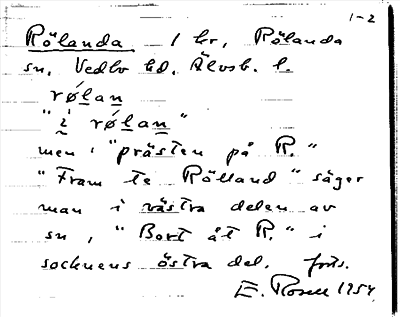 1-2
Rölanda 1 hr, Rölanda
sn, Vedbo hd. Älvsb. l.
rølan
"i rølan"
men: "prästen på R."
"Fram te Rölland" säger
man i västra delen av
sn, "Bort åt R." i
socknens östra del. forts.
E. Rosell 1954